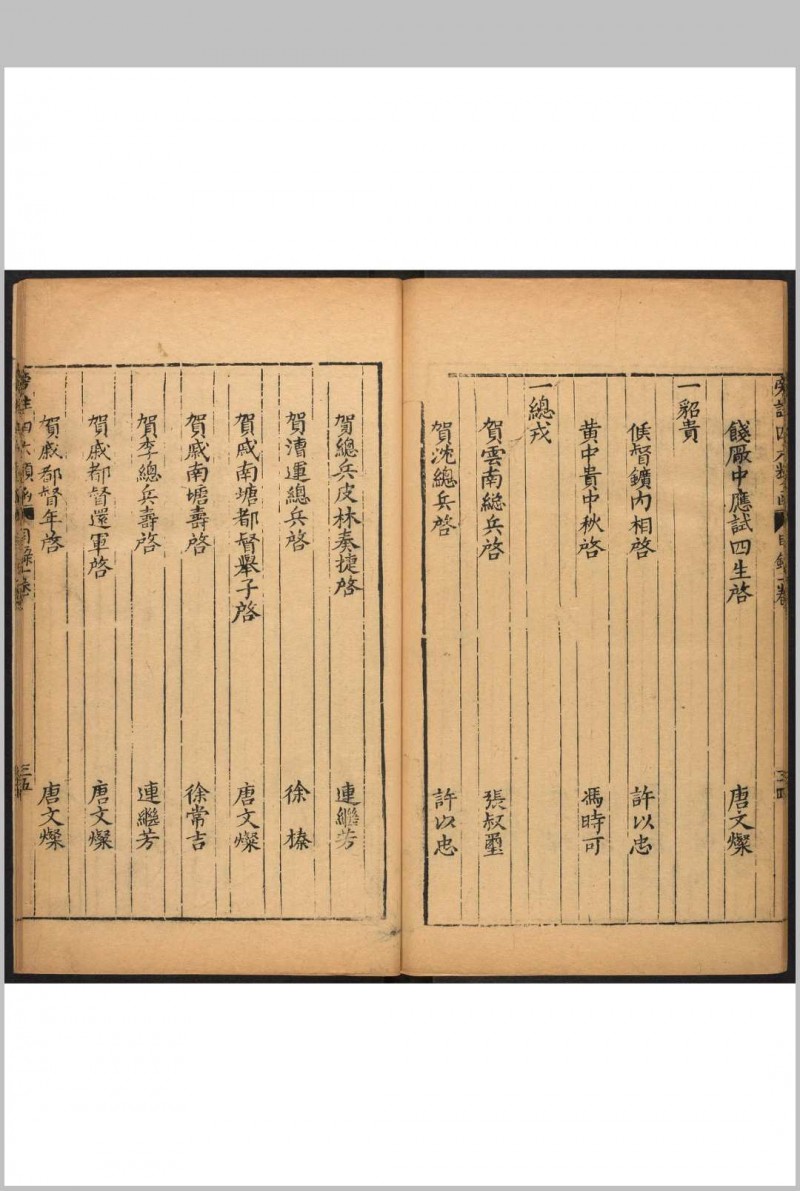 餞厰中應試四生啓 唐文燦
一貂貴
候督鑛内相啓 許以忠
黄中貴中秋啓 馮時可
一總戎
賀雲南總兵啓 張叔璽
賀沈總兵啓 許以忠
賀總兵皮林奏捷啓 連繼芳
賀漕運總兵啓 徐榛
賀戚南塘都督舉子啓 唐文燦
賀戚南塘壽啓 徐常吉
賀李總兵壽啓 連繼芳
賀戚都督還軍啓 唐文燦
賀戚都督年啓 唐文燦
旁註四六類函 目錄一卷 三五